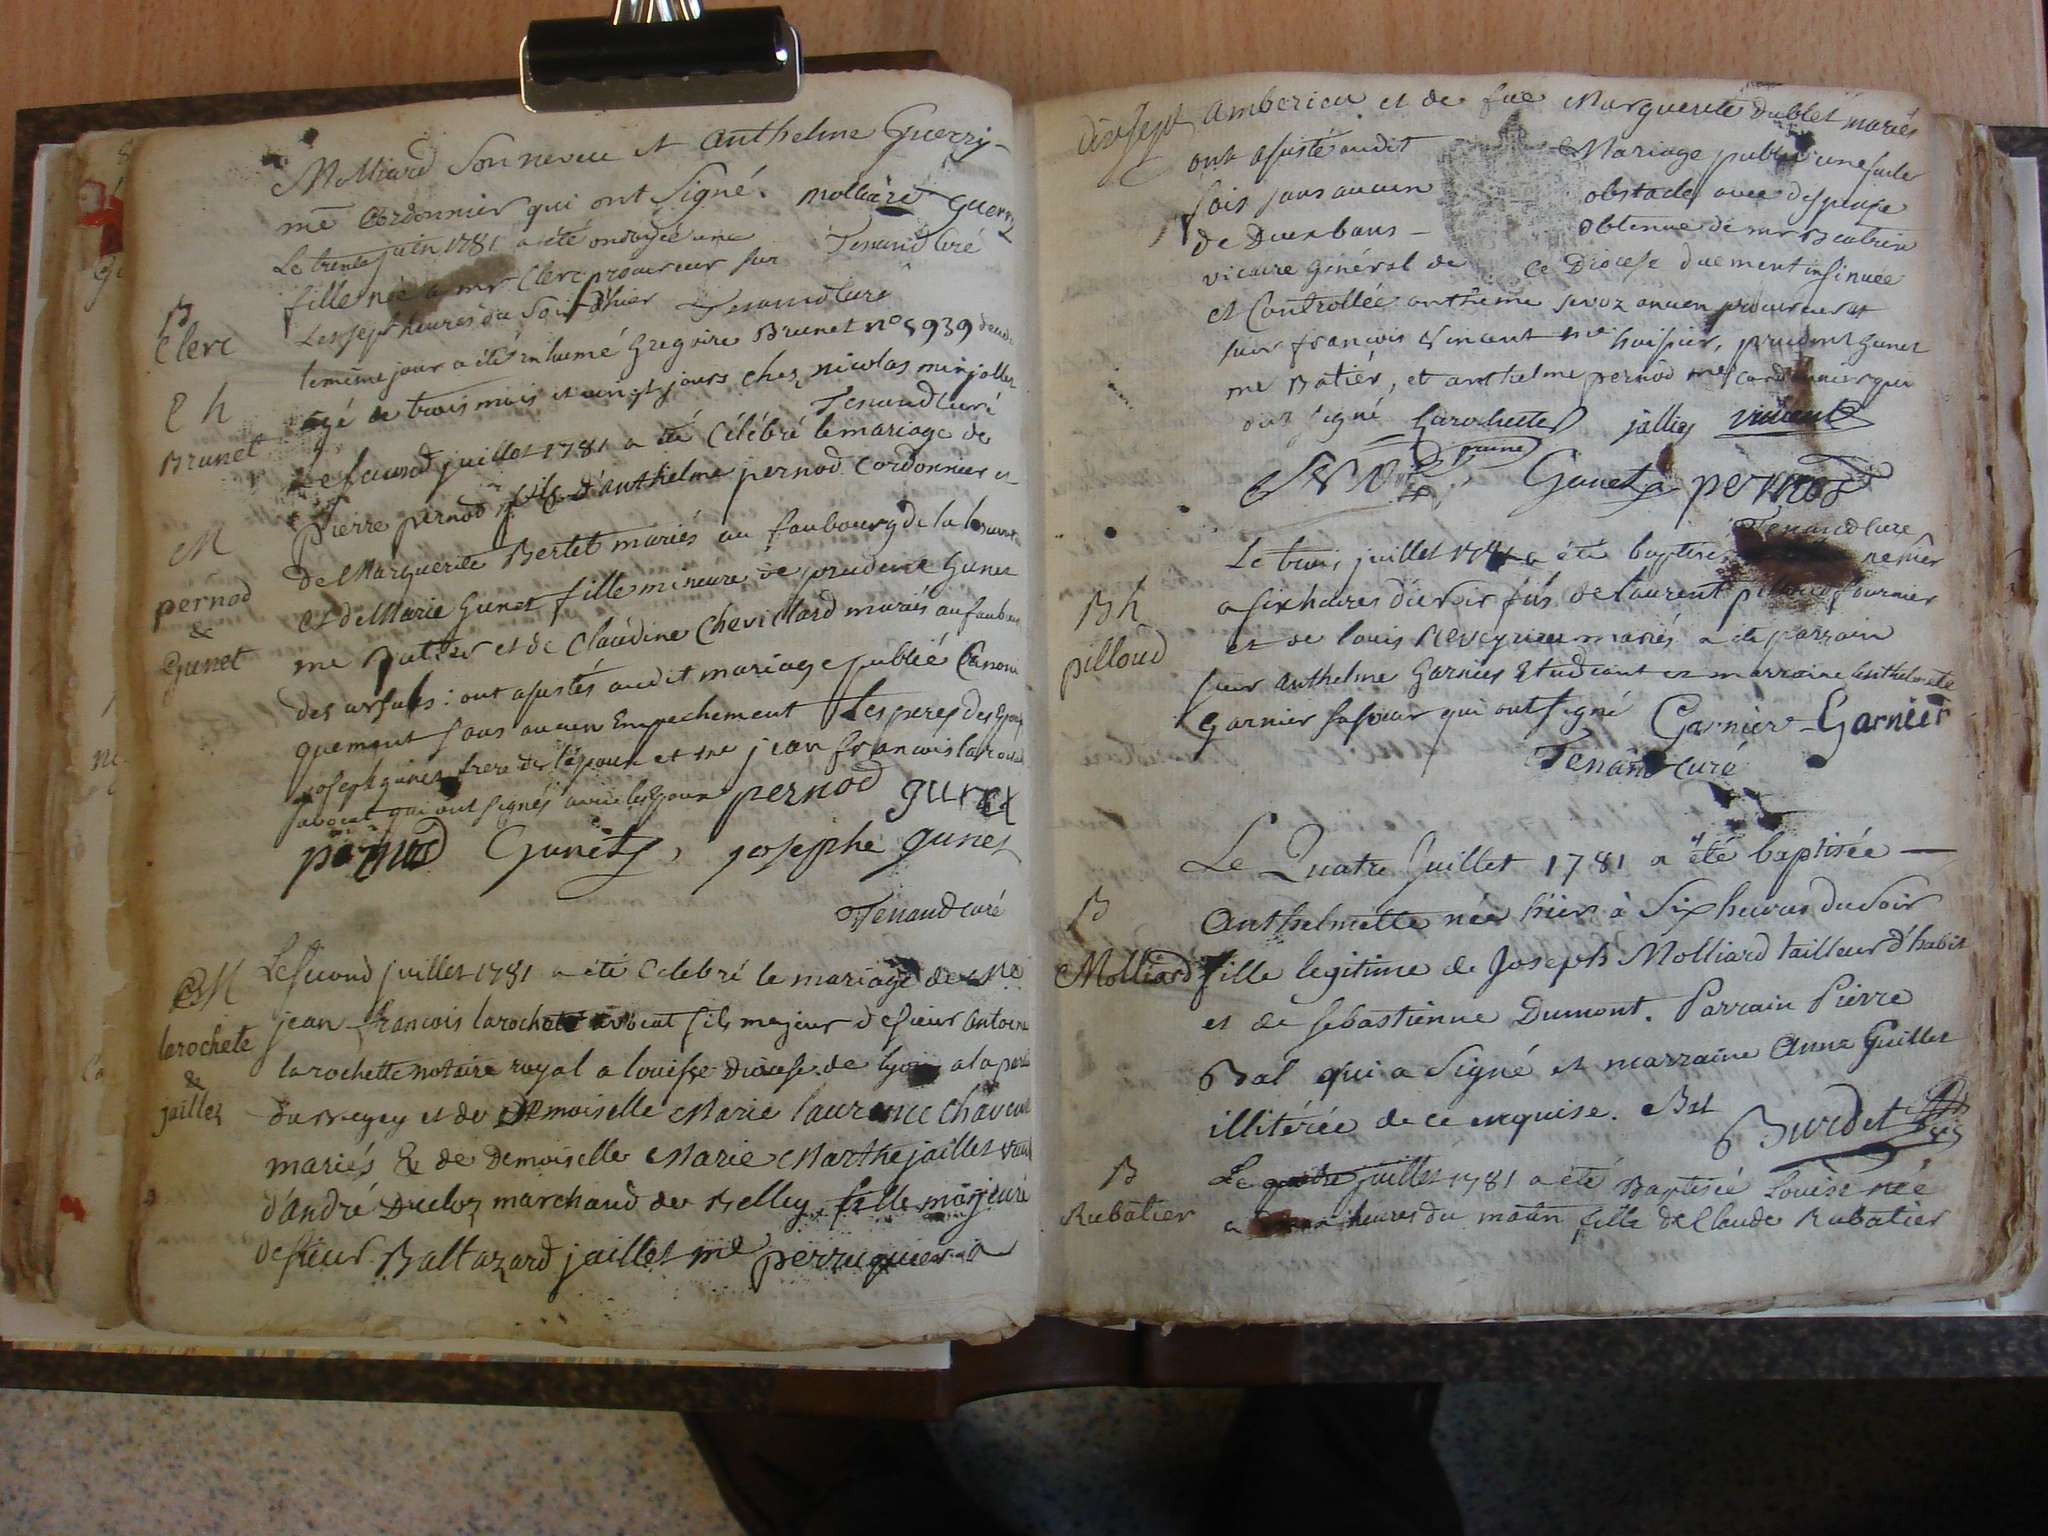 Molliard son neveu et anthelme Guerry
me Cordonnier qui ont signé. Molliard Guerry
Tenand Curé
B
Clerc
Le trente juin 1781 a été ondoyée une
fille née a mr Clerc procureur sur
Les sept heures du Soir d'hier Tenand Curé
Brunet
le même jour a été inhumé Gregoire Brunet no 5939
agé de trois mois et vingt jours chez nicolas minjollet
Tenand curé
M
pernod
&
Gunet
Le second juillet 1781 a été Célébré le mariage de
Pierre pernod fils d'anthelme pernod Cordonnier et
de Marguerite Bertet mariés au faubourg de la
et de Marie Gunet fille mineure de prudent Gunet
me Batier et de Claudine Chevillard mariés au faubourg
des ursules : ont assistés audit mariage publié
quement sans aucun Empechement Les peres des Epoux
joseph gunet frere de l'épouse et me jean francois larochette
avocat qui ont signés avec les Epoux pernod gunet
pernod Gunet josephe gunet
Tenand curé
M
larochete
&
jaillet
Le second juillet 1781 a été Celebré le mariage de Me
jean francois larochette avocat fils majeur de sieur antoine
larochette notaire royal a diocese de lyon a la part
du Bugey et de Dmoiselle Marie laurence
mariés & de Demoiselle Marie Marthe jaillet
d'andré marchand de Belley fille majeure
de sieur Baltazard jaillet me perruquier a
dixsept
amberieu et de fue Marguerite Dublet mariés
ont assisté audit Mariage publié une seule
fois sans aucun obstacle avec dispense
de Deux bans - obtenue de mr
vicaire général de ce Diocese duement insinuée
et Controllée anthelme ancien procureur et
sieur francois vincent me huissier, prudent gunet
me Batier, et anthelme pernod me cordonnier qui
ont signé Larochette jallier vincent
Gunet pernod
Tenand curé
Bh
pilloud
Le trois juillet 1781 a été baptisé né hier
a six heures du soir fils de laurent pilloud fournier
et de louis mariés a été parrain
sieur anthelme Garnier Etudiant et marraine anthelmete
Garnier sa soeur qui ont signé Garnier Garnier
Tenand curé
B
Molliard
Le Quatre Juillet 1781 a été baptisée
Anthelmette née hier à Six heures du Soir
fille legitime de Joseph Molliard tailleur d'habit
et de sebastienne Dumont. Parrain Pierre
Bal qui a signé et marraine Anne Guillet
illitérée de ce enquise. Bal Burdet
B
Rubatier
Le quatre juillet 1781 a été Baptisée Louise née
a heures du matin fille de Claude Rubatier